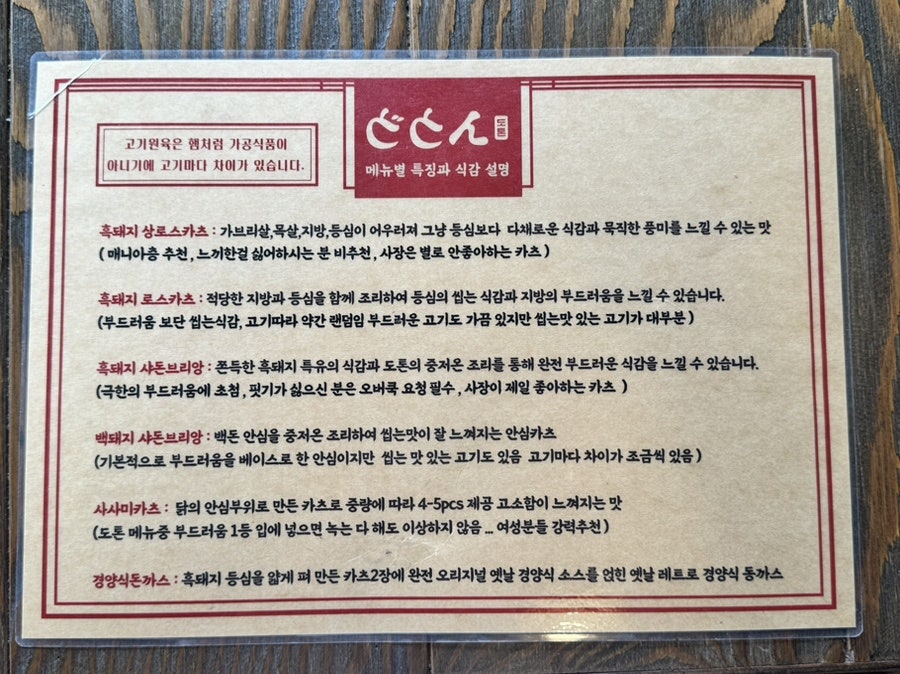 고기원육은 햄처럼 가공식품이
아니기에 고기마다 차이가 있습니다.
どとん 도톤
메뉴별 특징과 식감 설명
흑돼지 상로스카츠 : 가브리살,목살,지방,등심이 어우러져 그냥 등심보다 다채로운 식감과 묵직한 풍미를 느낄 수 있는 맛
( 매니아층 추천 , 느끼한걸 싫어하시는 분 비추천 , 사장은 별로 안좋아하는 카츠 )
흑돼지 로스카츠 : 적당한 지방과 등심을 함께 조리하여 등심의 씹는 식감과 지방의 부드러움을 느낄 수 있습니다.
(부드러움 보단 씹는식감, 고기따라 약간 랜덤임 부드러운 고기도 가끔 있지만 씹는맛 있는 고기가 대부분 )
흑돼지 샤돈브리앙 : 쫀득한 흑돼지 특유의 식감과 도톤의 중저온 조리를 통해 완전 부드러운 식감을 느낄 수 있습니다.
(극한의 부드러움에 초첨 , 핏기가 싫으신 분은 오버쿡 요청 필수 , 사장이 제일 좋아하는 카츠 )
백돼지 샤돈브리앙 : 백돈 안심을 중저온 조리하여 씹는맛이 잘 느껴지는 안심카츠
(기본적으로 부드러움을 베이스로 한 안심이지만 씹는 맛 있는 고기도 있음 고기마다 차이가 조금씩 있음 )
사사미카츠 : 닭의 안심부위로 만든 카츠로 중량에 따라 4-5pcs 제공 고소함이 느껴지는 맛
(도톤 메뉴중 부드러움 1등 입에 넣으면 녹는 다 해도 이상하지 않음 ... 여성분들 강력추천 )
경양식돈까스 : 흑돼지 등심을 얇게 펴 만든 카츠2장에 완전 오리지널 옛날 경양식 소스를 얹힌 옛날 레트로 경양식 돈까스